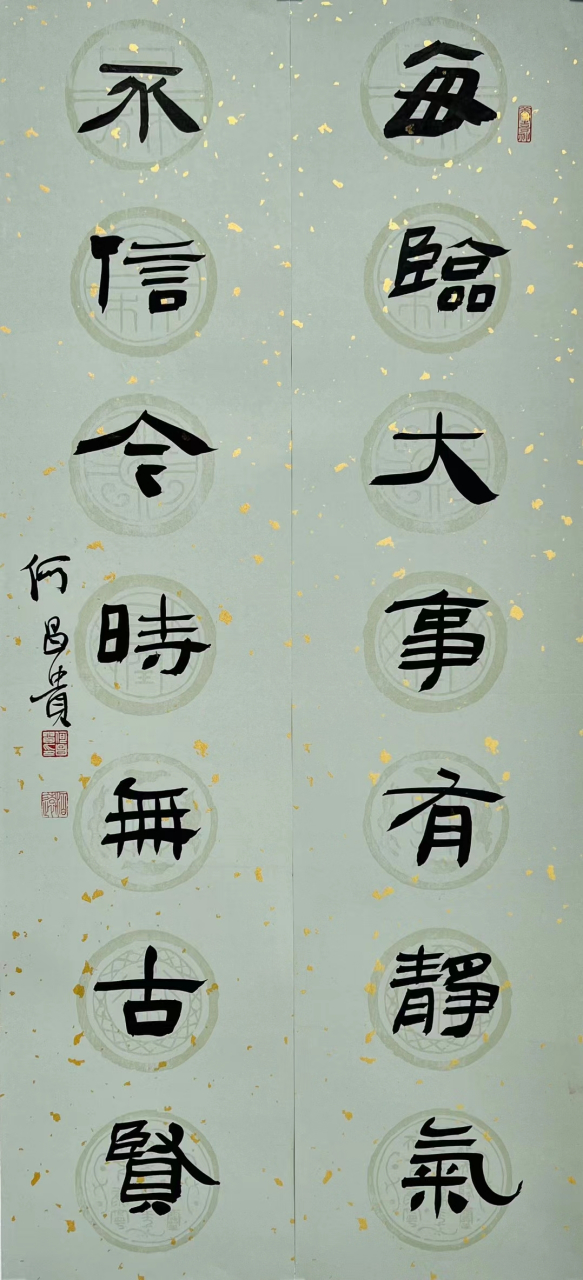 每臨大事有靜氣
不信今時無古賢
何昌貴